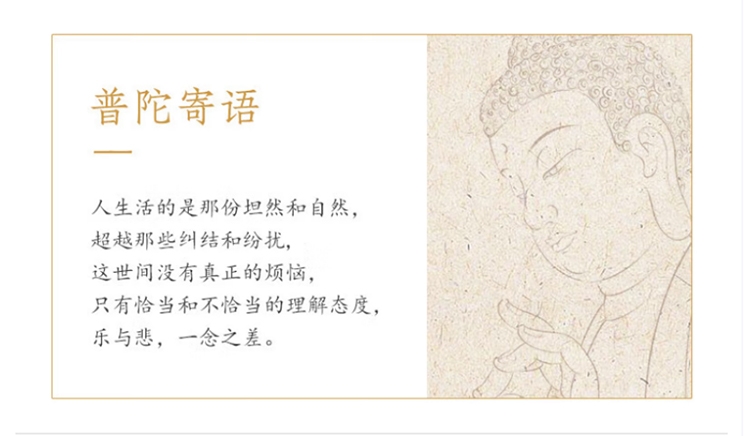 普陀寄语
人生活的是那份坦然和自然，
超越那些纠结和纷扰，
这世间没有真正的烦恼，
只有恰当和不恰当的理解态度，
乐与悲，一念之差。